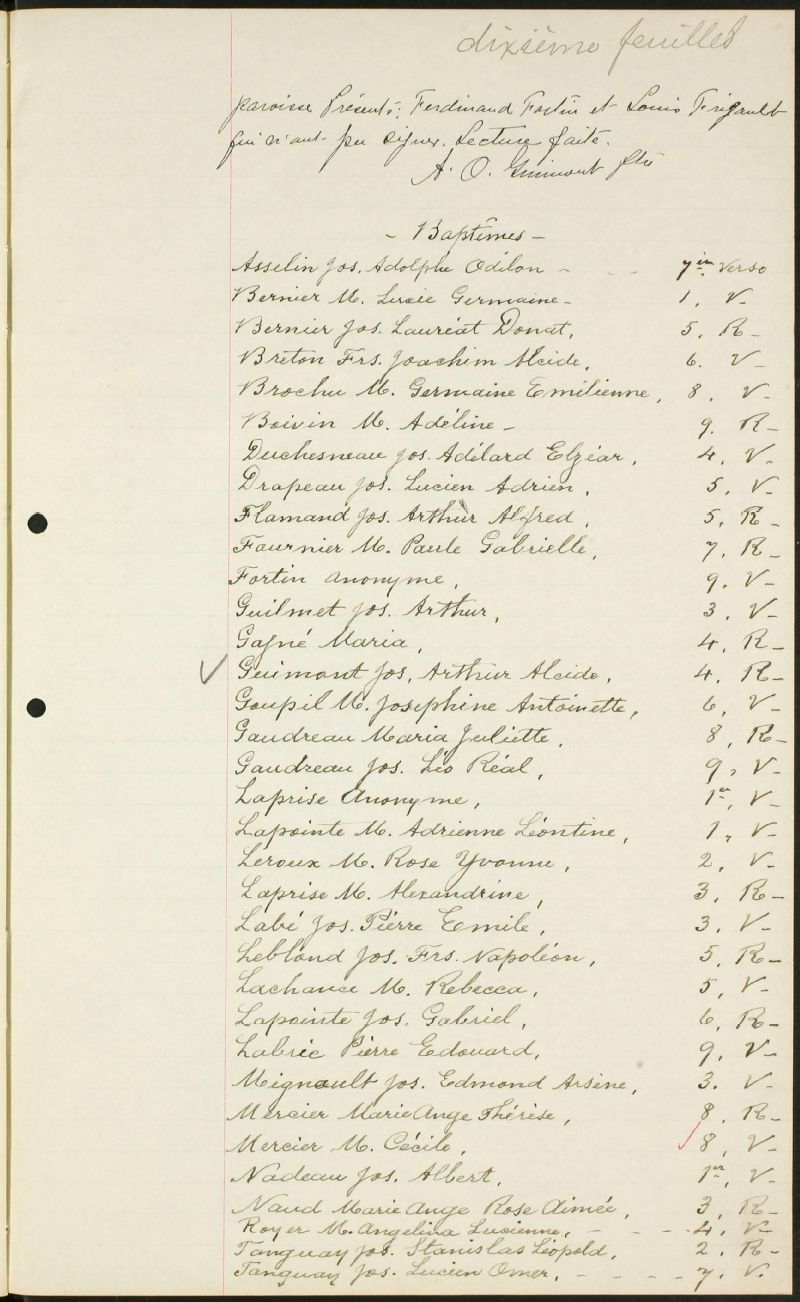 dixième feuillet
paroisse Présents: Ferdinand Fortin et Louis Frigault
qui n'ont pu signer. Lecture faite.
A. O. Guimont ptre
- Baptêmes -
Asselin Jos. Adolphe Odilon - - - 7ième verso
Bernier M. Lucie Germaine - 1, V -
Bernier Jos. Lauréat Donat, 5, R -
Breton Frs. Joachim Alcide, 6. V -
Brochu M. Germaine Emilienne, 8, V -
Boivin M. Adéline - 9. R -
Duchesneau Jos. Adélard Elzéar, 4, V -
Drapeau Jos. Lucien Adrien, 5, V -
Flamand Jos. Arthur Alfred, 5, R -
Fournier M. Paule Gabrielle, 7, R -
Fortin anonyme, 9, V -
Guilmet Jos. Arthur, 3, V -
Gagné Maria, 4, R -
✓ Guimont Jos, Arthur Alcide, 4, R -
Goupil M. Josephine Antoinette, 6, V -
Gaudreau Maria Juliette, 8, R -
Gaudreau Jos. Léo Réal, 9, V -
Laprise Anonyme, 1er, V -
Lapointe M. Adrienne Léontine, 1, V -
Leroux M. Rose Yvonne, 2, V -
Laprise M. Alexandrine, 3, R -
Labé Jos. Piérre Emile, 3, V -
Leblond Jos. Frs. Napoléon, 5, R -
Lachance M. Rebecca, 5, V -
Lapointe Jos. Gabriel, 6, R -
Labrie Pierre Edouard, 9, V -
Mignault Jos. Edmond Arsène, 3. V -
Mercier Marie Ange Thérèse, 8, R -
Mercier M. Cécile, ✓ 8, V -
Nadeau Jos. Albert, 1er, V -
Naud Marie Ange Rose Aimée, 3, R -
Royer M. Angelina Lucienne, - - - 4, V -
Tanguay Jos. Stanislas Léopold, 2, R -
Tanguay Jos. Lucien Omer, - - - 7, V.